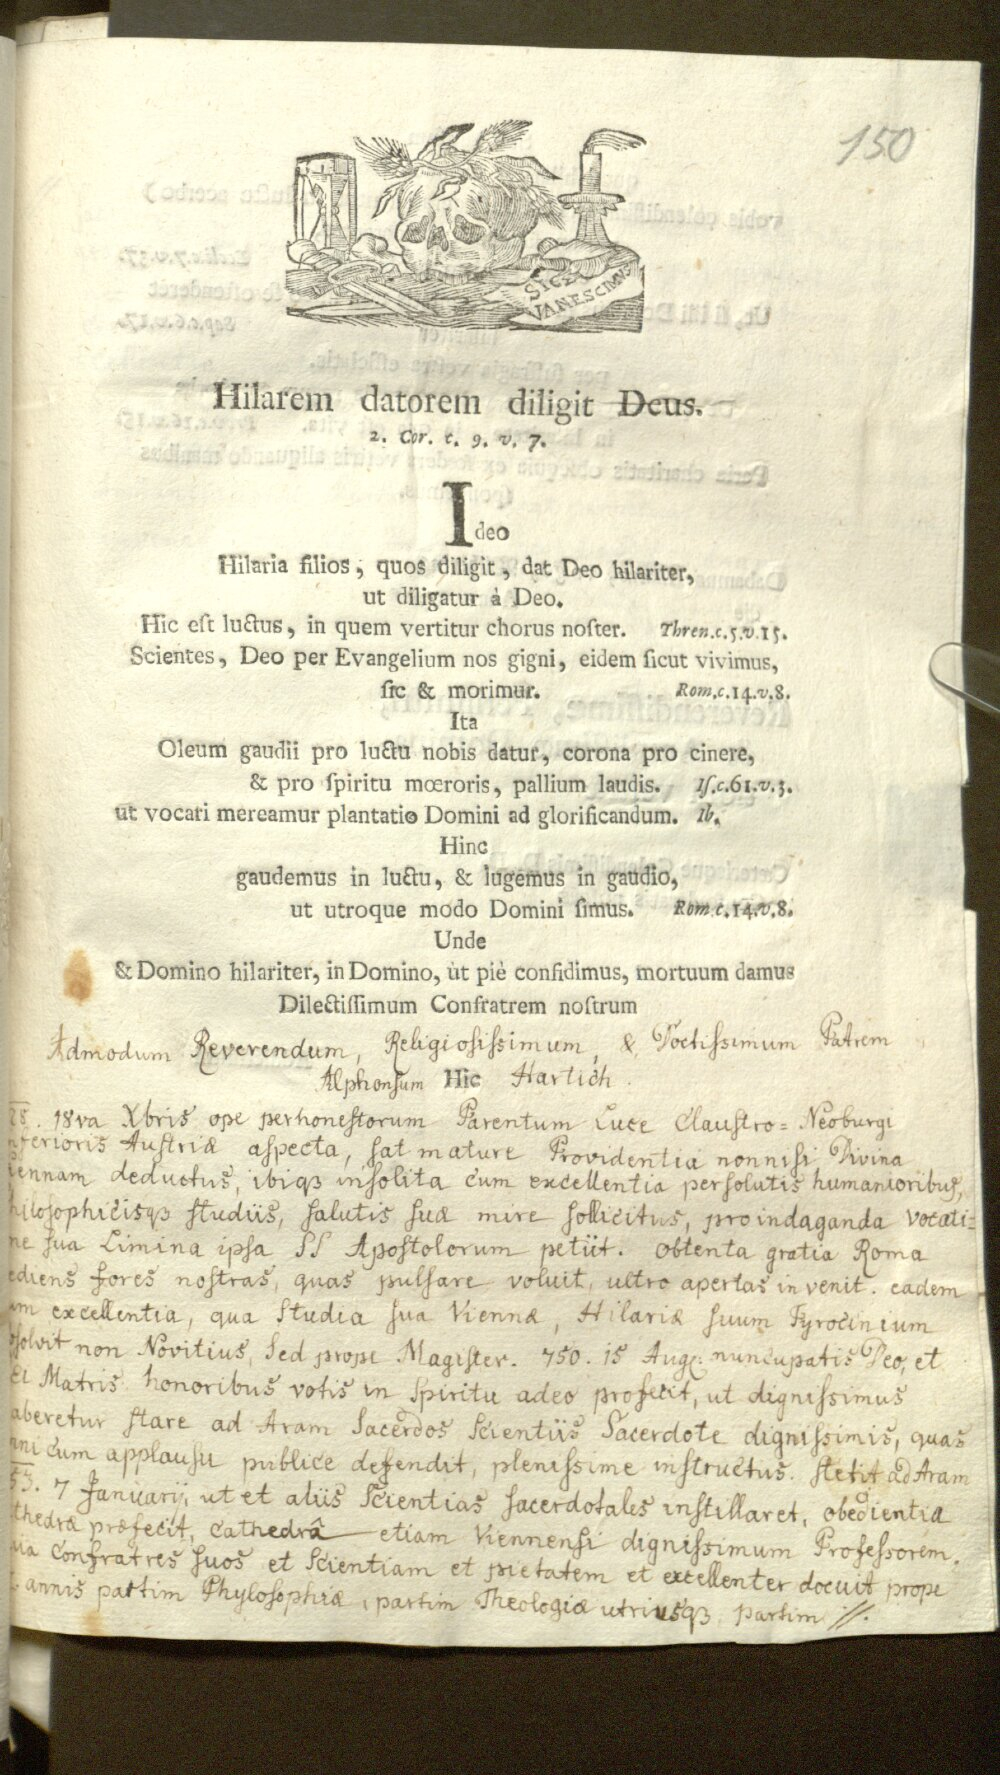 150
SIC E
VANESCIMUS
Hilarem datorem diligit Deus.
2. Cor. c. 9. v. 7.
Ideo
Hilaria filios, quos diligit, dat Deo hilariter,
ut diligatur à Deo.
Hic eſt luctus, in quem vertitur chorus noſter. Thren.c.5.v.15.
Scientes, Deo per Evangelium nos gigni, eidem ſicut vivimus,
ſic & morimur. Rom.c.14.v.8.
Ita
Oleum gaudii pro luctu nobis datur, corona pro cinere,
& pro ſpiritu mœroris, pallium laudis. Iſ.c.61.v.3.
ut vocati mereamur plantatio Domini ad glorificandum. Ib.
Hinc
gaudemus in luctu, & lugemus in gaudio,
ut utroque modo Domini ſimus. Rom.c.14.v.8.
Unde
& Domino hilariter, in Domino, ut piè confidimus, mortuum damus
Dilectiſſimum Confratrem noſtrum
Admodum Reverendum, Religiosiſsimum, & Doctiſsimum Patrem
Alphonsum Hic Hartich.
28. 18va Xbris ope perhoneſtorum Parentum Luce Clauſtro= Neoburgi
nferioris Auſtriæ aſpecta, ſat mature Providentia nonniſi Divina
iennam deductus, ibiqȝ inſolita cum excellentia perſolutis humanioribus,
hiloſophicisqȝ ſtudiis, ſalutis ſuæ mire ſollicitus, pro indaganda vocati=
ne ſua Limina ipſa SS Apoſtolorum petiit. obtenta gratia Roma
ediens fores noſtras, quas pulſare voluit, ultro apertas invenit. eadem
um excellentia, qua Studia ſua Viennæ, Hilariæ ſuum Tyrocinium
bſolvit non Novitius, Sed prope Magiſter. 750. 15 Aug. nuncupatis Deo, et
ei Matris honoribus votis in Spiritu adeo profecit, ut digniſsimus
aberetur ſtare ad Aram Sacerdos Scientiis Sacerdote digniſsimis, quas
mni cum applauſu publice defendit, pleniſsime inſtructus. ſtetit ad Aram
53. 7 Januarij, ut et aliis Scientias ſacerdotales inſtillaret, obedientia
thedræ præfecit, cathedrâ etiam Viennenſi digniſsimum Profeſſorem.
uia Confratres ſuos et Scientiam et pietatem et excellenter docuit prope
annis partim Phyloſophiæ, partim Theologiæ utriusqȝ partim //.